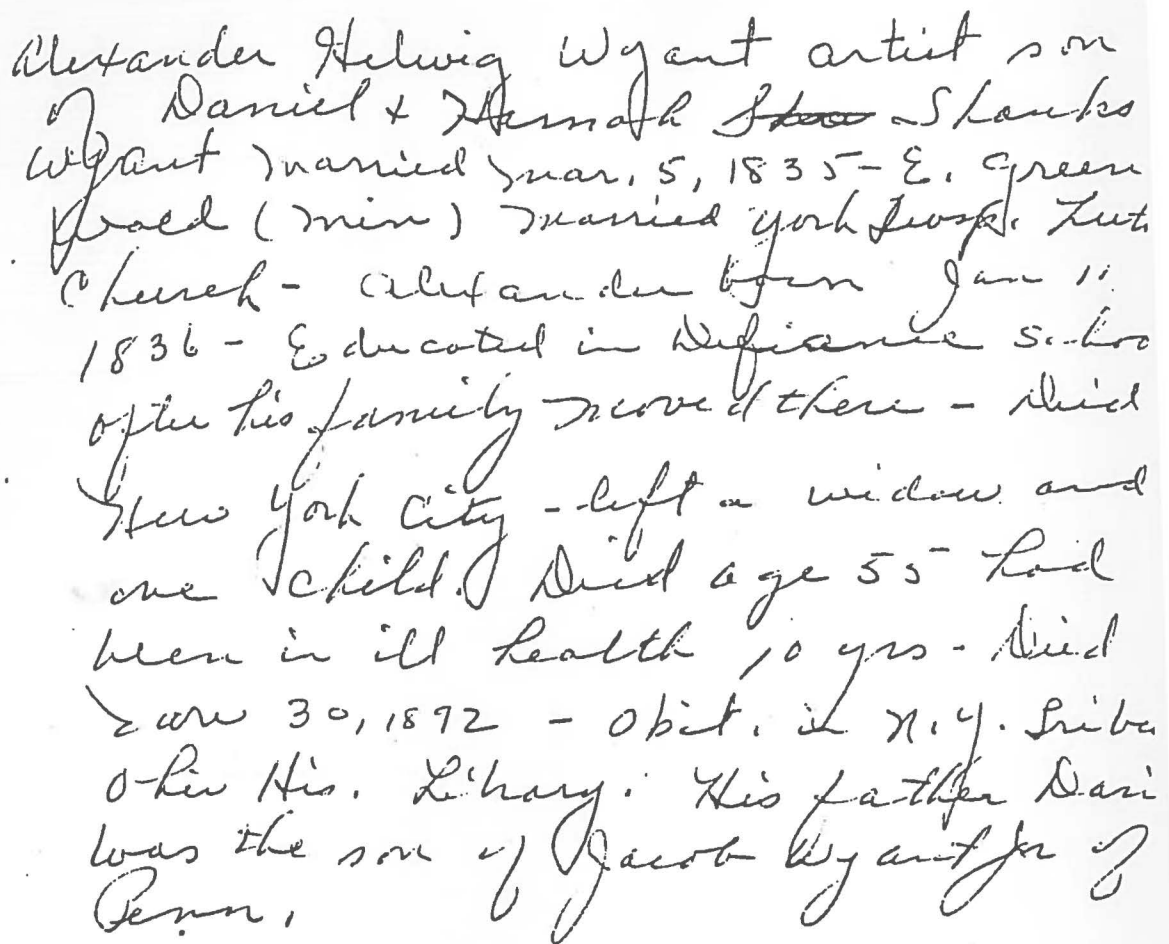 Alexander Helwig Wyant artist son
of Daniel + Hannah Shanks
Wyant married mar. 5, 1835 - E. Green
wald (min) married york twsp. Lut
Church - Alexander born Jan 11
1836 - Educated in Defiance schoo
after his family moved there - Died
New York City - left a widow and
one child. Died age 55 had
been in ill health 10 yrs - Died
30, 1892 - Obit. in N.Y. Tribu
Ohio His. Library. His father Dani
was the son of Jacob Wyant Jr of
Penn.